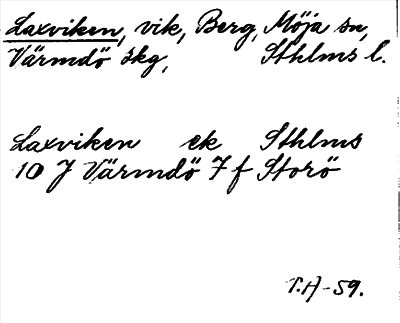 Laxviken, vik, Berg, Möja sn,
Värmdö skg, Sthlms l.
Laxviken ek Sthlms
10 J Värmdö 7 f Storö
T.H-59.